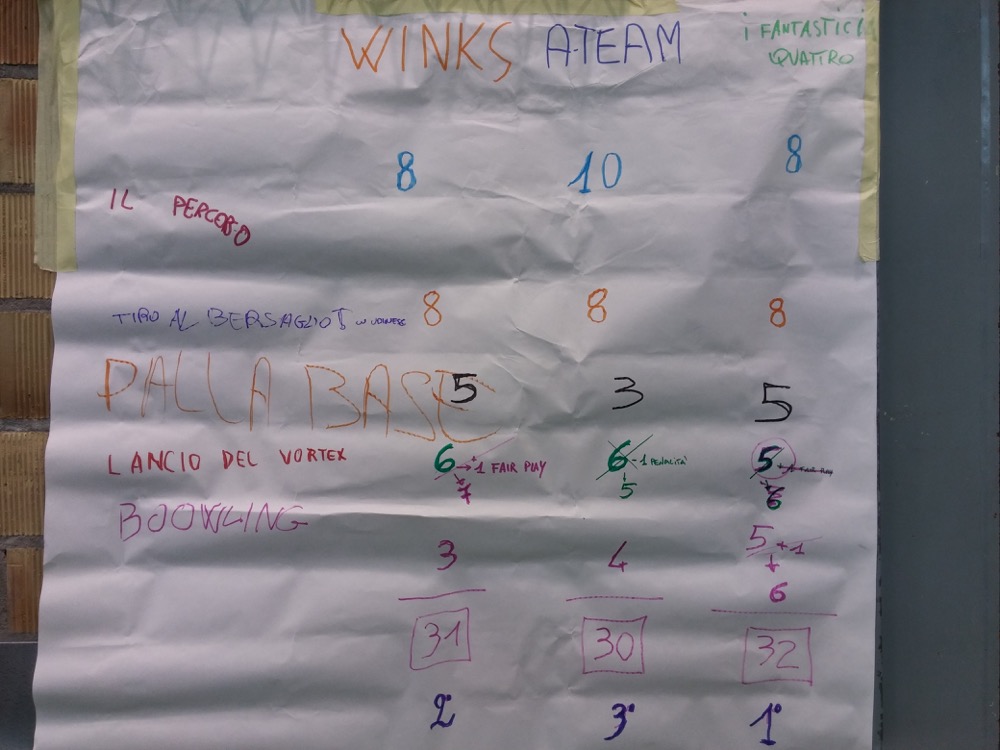 WINKS A-TEAM i FANTASTICI
QUATTRO
8 10 8
IL PERCORSO
TIRO AL BERSAGLIO 8 8 8
PALLA BASE 5 3 5
LANCIO DEL VORTEX 6 → +1 FAIR PLAY 6 -1 PENALITÀ 5 +1 FAIR PLAY
7 5 6
BOOWLING
3 4 5 +1
6
31 30 32
2° 3° 1°